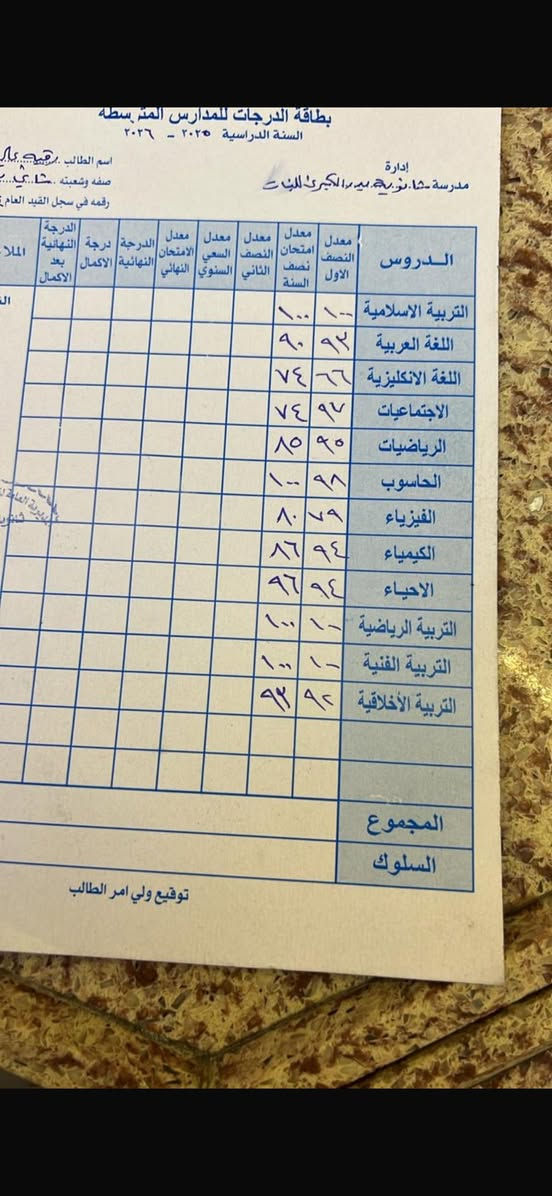 بطاقة الدرجات للمدارس المتوسطة
السنة الدراسية ٢٠٢٥ - ٢٠٢٦
إدارة
مدرسة ثانوية الكبرى للبنات
اسم الطالب رقيه
صفه وشعبته ثاني
رقمه في سجل القيد العام
الدروس معدل النصف الاول معدل امتحان نصف السنة معدل النصف الثاني معدل السعي السنوي معدل الامتحان النهائي الدرجة النهائية درجة الاكمال الدرجة النهائية بعد الاكمال
التربية الاسلامية ١٠٠ ١٠٠
اللغة العربية ٩٣ ٩٠
اللغة الانكليزية ٦٦ ٧٤
الاجتماعيات ٩٧ ٧٤
الرياضيات ٩٥ ٨٥
الحاسوب ٩٨ ١٠٠
الفيزياء ٧٩ ٨٠
الكيمياء ٩٤ ٨٦
الاحياء ٩٤ ٩٦
التربية الرياضية ١٠٠ ١٠٠
التربية الفنية ١٠٠ ١٠٠
التربية الأخلاقية ٩٢ ٩٣
المجموع
السلوك
توقيع ولي امر الطالب